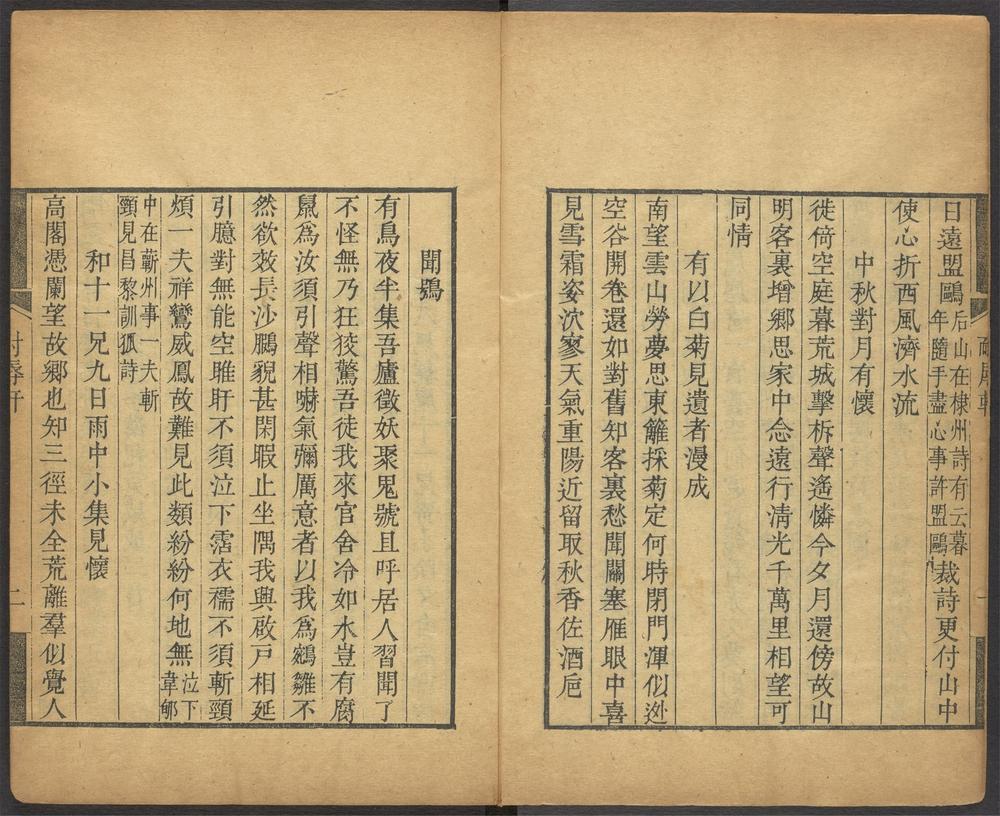 日遠盟鷗后山在棣州詩有云暮年隨手盡心事許盟鷗裁詩更付山中
使心折西風濟水流
中秋對月有懷
徙倚空庭暮荒城擊柝聲遙憐今夕月還傍故山
明客裏增鄉思家中念遠行淸光千萬里相望可
同情
有以白菊見遺者漫成
南望雲山勞夢思東籬採菊定何時閉門渾似逃
空谷開卷還如對舊知客裏愁聞關塞雁眼中喜
見雪霜姿泬寥天氣重陽近留取秋香佐酒巵
聞鴞
有鳥夜半集吾廬徵妖聚鬼號且呼居人習聞了
不怪無乃狂狡驚吾徒我來官舍冷如水豈有腐
鼠爲汝須引聲相嚇氣彌厲意者以我爲鵷雛不
然欲效長沙鵩貌甚閑暇止坐隅我興啟戸相延
引臆對無能空睢盱不須泣下霑衣襦不須斬頸
煩一夫祥鸞威鳳故難見此類紛紛何地無泣下韋郇
中在蘄州事一夫斬
頸見昌黎訓狐詩
和十一兄九日雨中小集見懷
高閣憑闌望故鄉也知三徑未全荒離羣似覺人
二